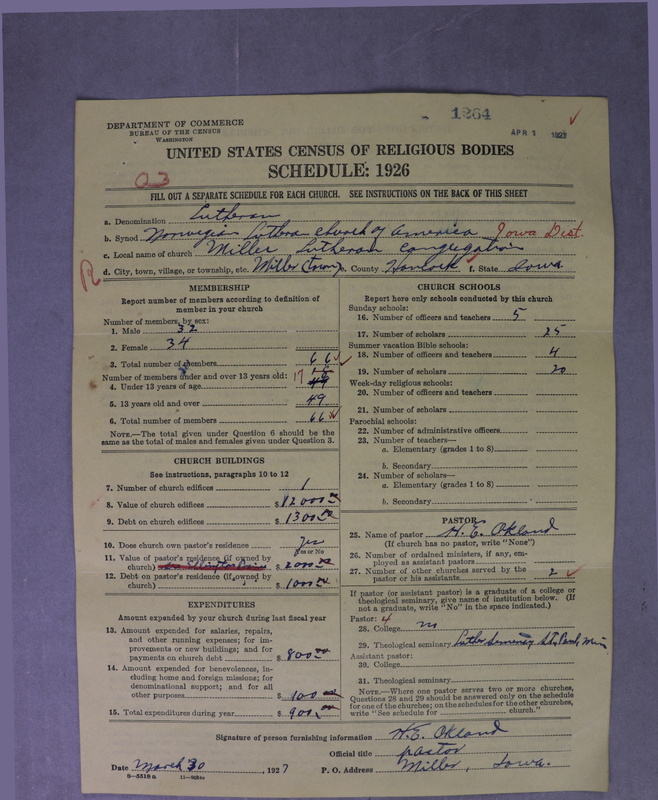 1264
APR 1 1927
DEPARTMENT OF COMMERCE
BUREAU OF THE CENSUS
WASHINGTON
UNITED STATES CENSUS OF RELIGIOUS BODIES
SCHEDULE: 1926
03
FILL OUT A SEPARATE SCHEDULE FOR EACH CHURCH. SEE INSTRUCTIONS ON THE BACK OF THIS SHEET
a. Denomination Lutheran
b. Synod Norwegian Luthera church of America Iowa Dist.
c. Local name of church Miller Lutheran Congregation
R
d. City, town, village, or township, etc. Miller (town) e. County Hancock f. State Iowa
MEMBERSHIP
Report number of members according to definition of
member in your church
Number of members, by sex:
1. Male 32
2. Female 34
3. Total number of members 66
Number of members under and over 13 years old: 17
4. Under 13 years of age
5. 13 years old and over 49
6. Total number of members 66
NOTE.—The total given under Question 6 should be the
same as the total of males and females given under Question 3.
CHURCH BUILDINGS
See instructions, paragraphs 10 to 12
7. Number of church edifices 1
8. Value of church edifices $12000.00
9. Debt on church edifices $1300.00
10. Does church own pastor's residence yes
Yes or No
11. Value of pastor's residence (if owned by
church) $2000.00
12. Debt on pastor's residence (if owned by
church) $1000.00
EXPENDITURES
Amount expended by your church during last fiscal year
13. Amount expended for salaries, repairs,
and other running expenses; for im-
provements or new buildings; and for
payments on church debt $800.00
14. Amount expended for benevolences, in-
cluding home and foreign missions; for
denominational support; and for all
other purposes $100.00
15. Total expenditures during year $900.00
CHURCH SCHOOLS
Report here only schools conducted by this church
Sunday schools:
16. Number of officers and teachers 5
17. Number of scholars 25
Summer vacation Bible schools:
18. Number of officers and teachers 4
19. Number of scholars 20
Week-day religious schools:
20. Number of officers and teachers
21. Number of scholars
Parochial schools:
22. Number of administrative officers
23. Number of teachers—
a. Elementary (grades 1 to 8)
b. Secondary
24. Number of scholars—
a. Elementary (grades 1 to 8)
b. Secondary
PASTOR
25. Name of pastor H. E. Okland
(If church has no pastor, write "None")
26. Number of ordained ministers, if any, em-
ployed as assistant pastors
27. Number of other churches served by the
pastor or his assistants 2
If pastor (or assistant pastor) is a graduate of a college or
theological seminary, give name of institution below. (If
not a graduate, write "No" in the space indicated.)
Pastor: 4
28. College no
29. Theological seminary Luther Semenery St. Paul, Min
Assistant pastor:
30. College
31. Theological seminary
NOTE.—Where one pastor serves two or more churches,
Questions 28 and 29 should be answered only on the schedule
for one of the churches; on the schedules for the other churches,
write "See schedule for church."
Signature of person furnishing information H. E. Okland
Official title pastor
Date March 30, 1927 P. O. Address Miller, Iowa.